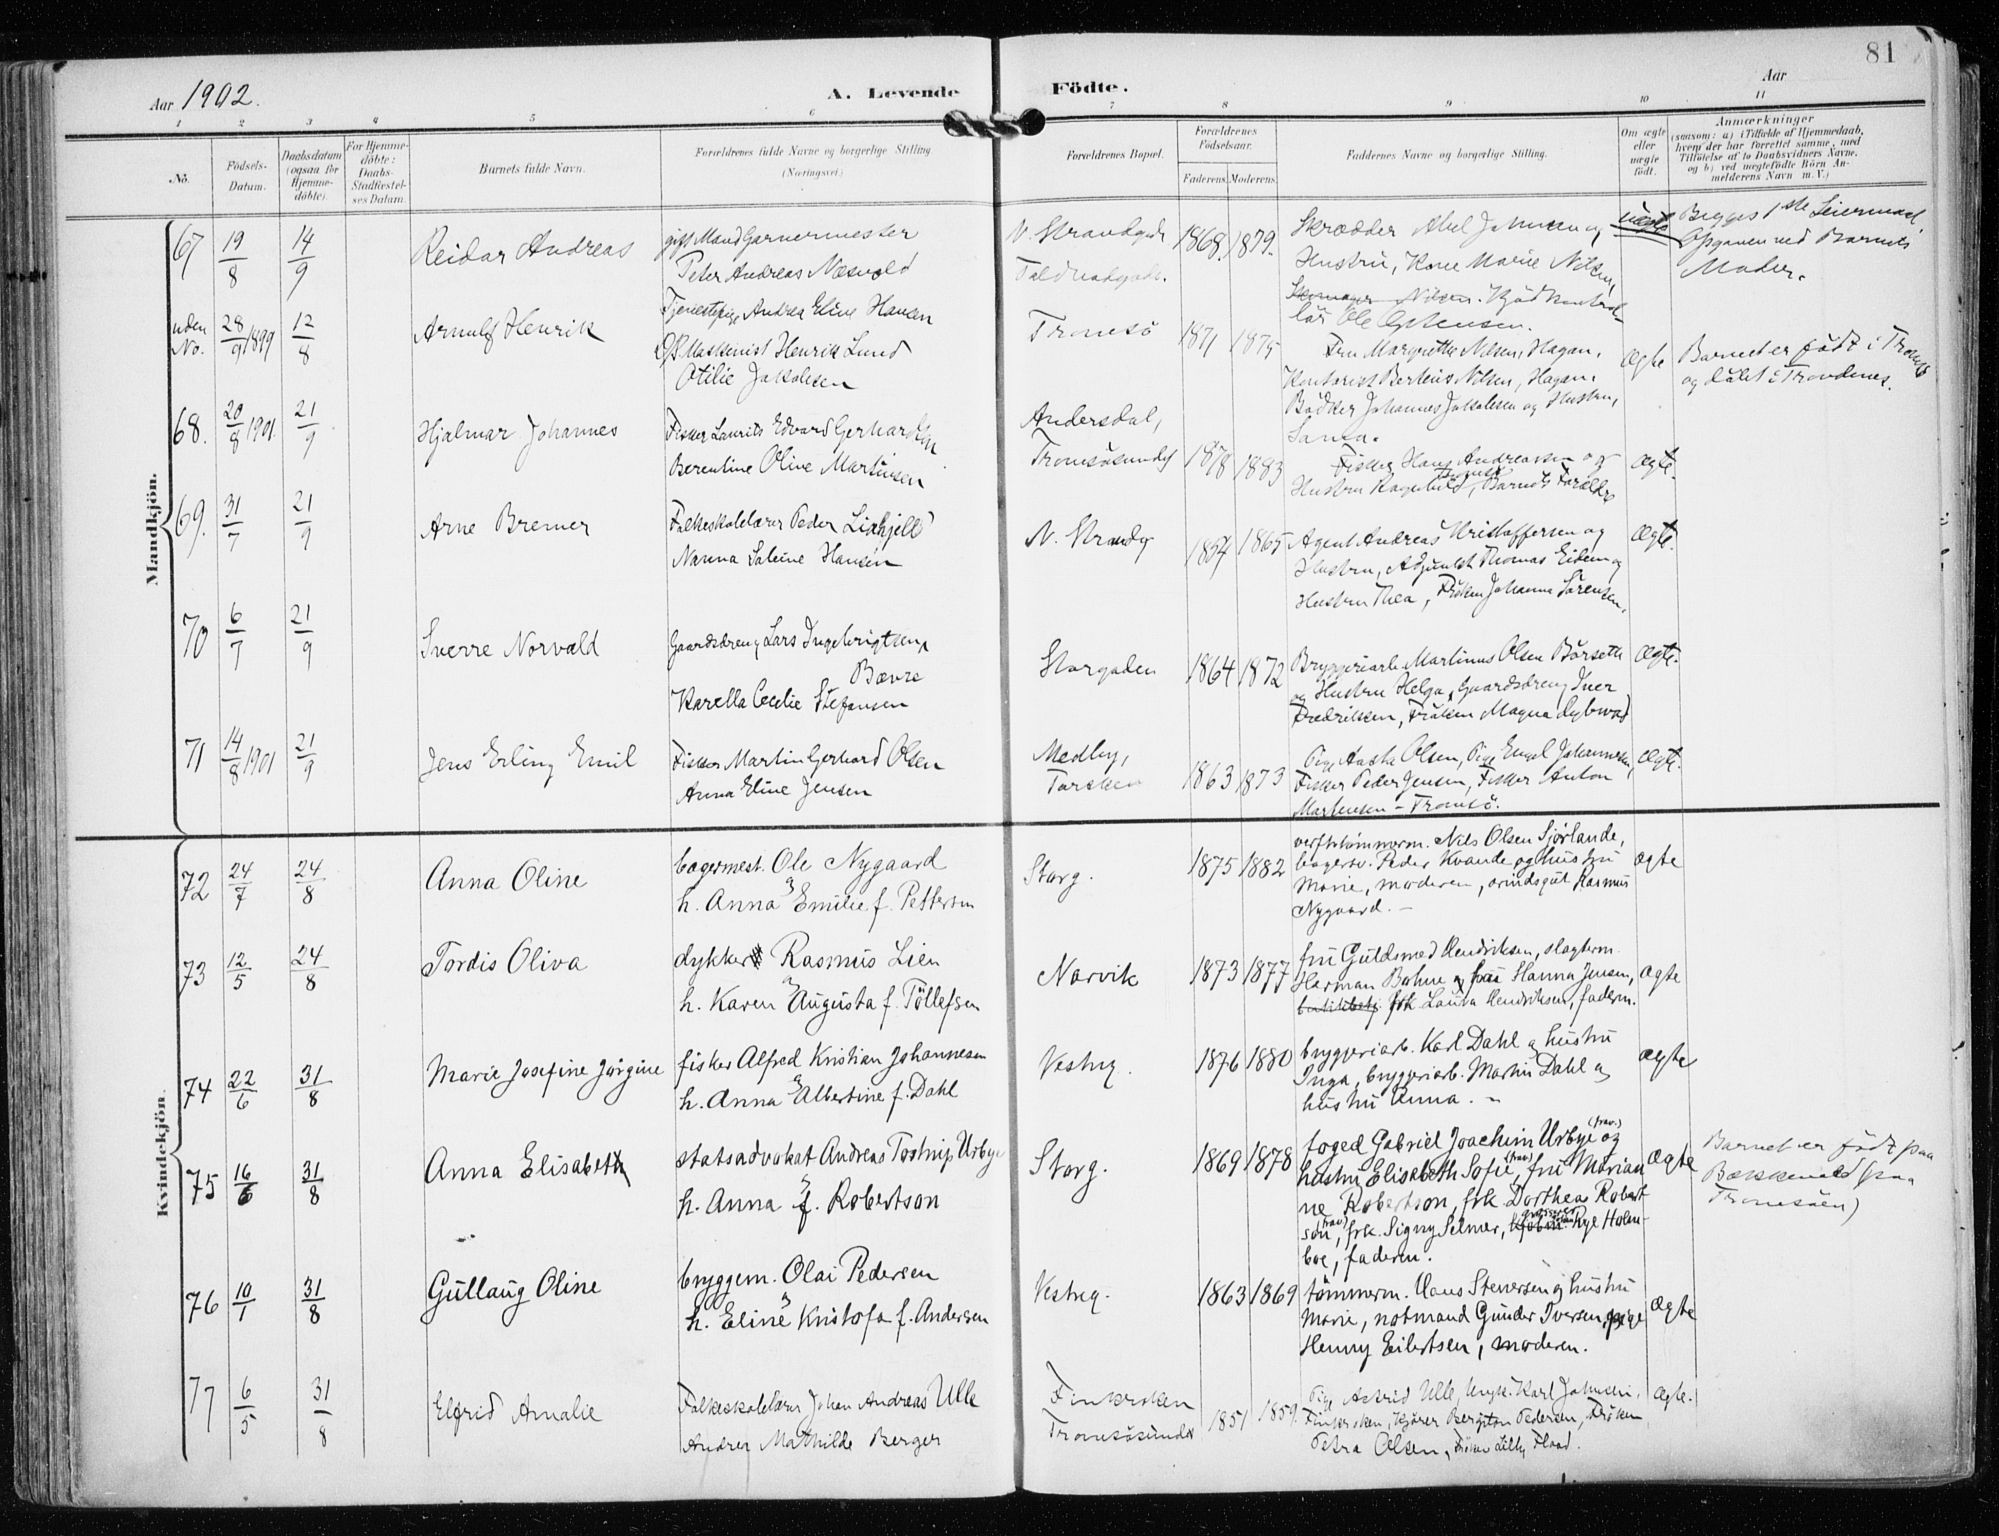 81
Aar 1902.
A. Levende
Födte.
Aar
1 2 3 4 5 6 7 8 9 10 11
No.
Födsels-
Datum.
Daabsdatum
(ogsaa for
Hjemme-
döbte).
For Hjemme-
döbte:
Daabs-
Stadfæstel-
ses Datum.
Barnets fulde Navn.
Forældrenes fulde Navne og borgerlige Stilling
(Næringsvei)
Forældrenes Bopæl.
Forældrenes
Födselsaar.
Faderens. Moderens.
Faddernes Navne og borgerlige Stilling.
Om ægte
eller
uægte
født.
Anmærkninger
(saasom: a) i Tilfælde af Hjemmedaab,
hvem der har forrettet samme, med
Tilföielse af to Daabsvidners Navne,
og b) ved uægtefödte Börn An-
melderens Navn m. V.)
Mandkjön.
67 19/8 14/9 Reidar Andreas
gift Mand Garnermester
Peter Andreas Næsvold
Tjenestepige Andrea Eline Hansen
N. Strandgade
1868. 1879.
Skrædder Johnsen og
Hustru, Kone Marie Nilsen,
Skomager Nilsen.
uægte
Begges 1ste Leiermaal
Opgaven ved Barnets
Moder.
uden
No. 28/9 1899 12/8 Arnulf Henrik
Maskinist Henrik Lund
Otilie Jakobsen
Tromsö
1871 1875
Fru Margrethe Nilsen, Hagan,
Kontorist Berteus Nilsen, Hagan,
Bödker Johannes Jakobsen og Hustru,
ægte
Barnet er födt i Tromsö
og döbt i Trondenes.
68. 20/8 1901. 21/9 Hjalmar Johannes
Fisker Laurits Edvard Gerhardsen
Berentine Olive Martinsen
Andersdal,
Tromsösundet
1878 1883
Fisker Hans Andreassen og
Hustru Ragnhild, Barnets Forældre
ægte.
69. 31/7 21/9 Arne Bremer
Folkeskolelærer Peder Lidkjell
Nanna Saline Hansen
N. Strandg
1854 1865
Agent Andreas Kristoffersen og
Hustru, Adjunkt Thomas Eidem og
Hustru Thea, Fröken Johanna Sörensen,
ægte.
70 6/7 21/9 Sverre Norvald
Gaardsdreng Lars Ingebrigtsen
Bævre
Karella Cecilie Stefansen
Storgaden
1864 1872
Bryggeriarb. Martinus Olsen Börseth
og Hustru Helga, Gaardsdreng Iver
Fredriksen, Fröken Magna Dybwad
ægte.
71 14/8 1901 21/9 Jens Erling Emil
Fisker Martin Gerhard Olsen
Anna Eline Jensen
Medby,
Torsken
1863 1873
Pige Aasta Olsen, Pige Engel Johannesen,
Fisker Peder Jensen, Fisker Anton
Martensen - Tromsö.
ægte.
Kvindekjön.
72 24/7 24/8 Anna Oline
bagermest. Ole Nygaard
h. Anna Emilie f. Pettersen
Storg.
1875 1882
verftstömmerm. Nils Olsen Sjörlande,
bagersv. Peder Kvande og hustru
Marie, moderen, Rasmus
Nygaard. -
ægte
73 12/5 24/8 Tordis Oliva
dykker Rasmus Lien
h. Karen Augusta f. Töllefsen
Narvik
1873 1877
fru Guldsmed Hendriksen, slagterm.
Herman Bohne og frü Hanna Jensen,
frk Laura Hendriksen, faderen.
ægte
74 22/6 31/8 Marie Josefine Jørgine
fisker Alfred Kristian Johannesen
h. Anna Albertine f. Dahl
Vestreg.
1876 1880
bryggeriarb. Karl Dahl og hustru
Inga, bryggeriarb. Martin Dahl og
hustru Anna. -
ægte
75 16/6 31/8 Anna Elisabeth
statsadvokat Andreas Tostrup Urbye
h. Anna f. Robertson
Storg.
1869 1878
foged Gabriel Joachim Urbye (frav.) og
hustru Elisabeth Sofie (frav), frü Marian
ne Robertson, frk. Dorthea Robert
son (frav), frk. Signy Selmer, Rye Holm-
boe, faderen.
ægte
Barnet er födt paa
(paa
Tromsöen)
76 10/1 31/8 Gullaug Oline
bryggem. Olai Pedersen
h. Eline Kristofa f. Andersen
Vestreg.
1863 1869
tömmerm. Hans Steversen og hustru
Marie, notmand Gunder Iversen, pige
Henny Eilertsen, moderen.
ægte
77 6/5 31/8 Elfrid Amalie
Folkeskolelærer Johan Andreas Ulle
Andrea Mathilde Berger
Finkroken
Tromsösundet
1851 1859.
Pige Astrid Ulle, Ungk. Karl Johnsen,
Finkroken, Bergiton Pedersen, Fröken
Petra Olsen, Fröken Lilly Flood.
ægte.